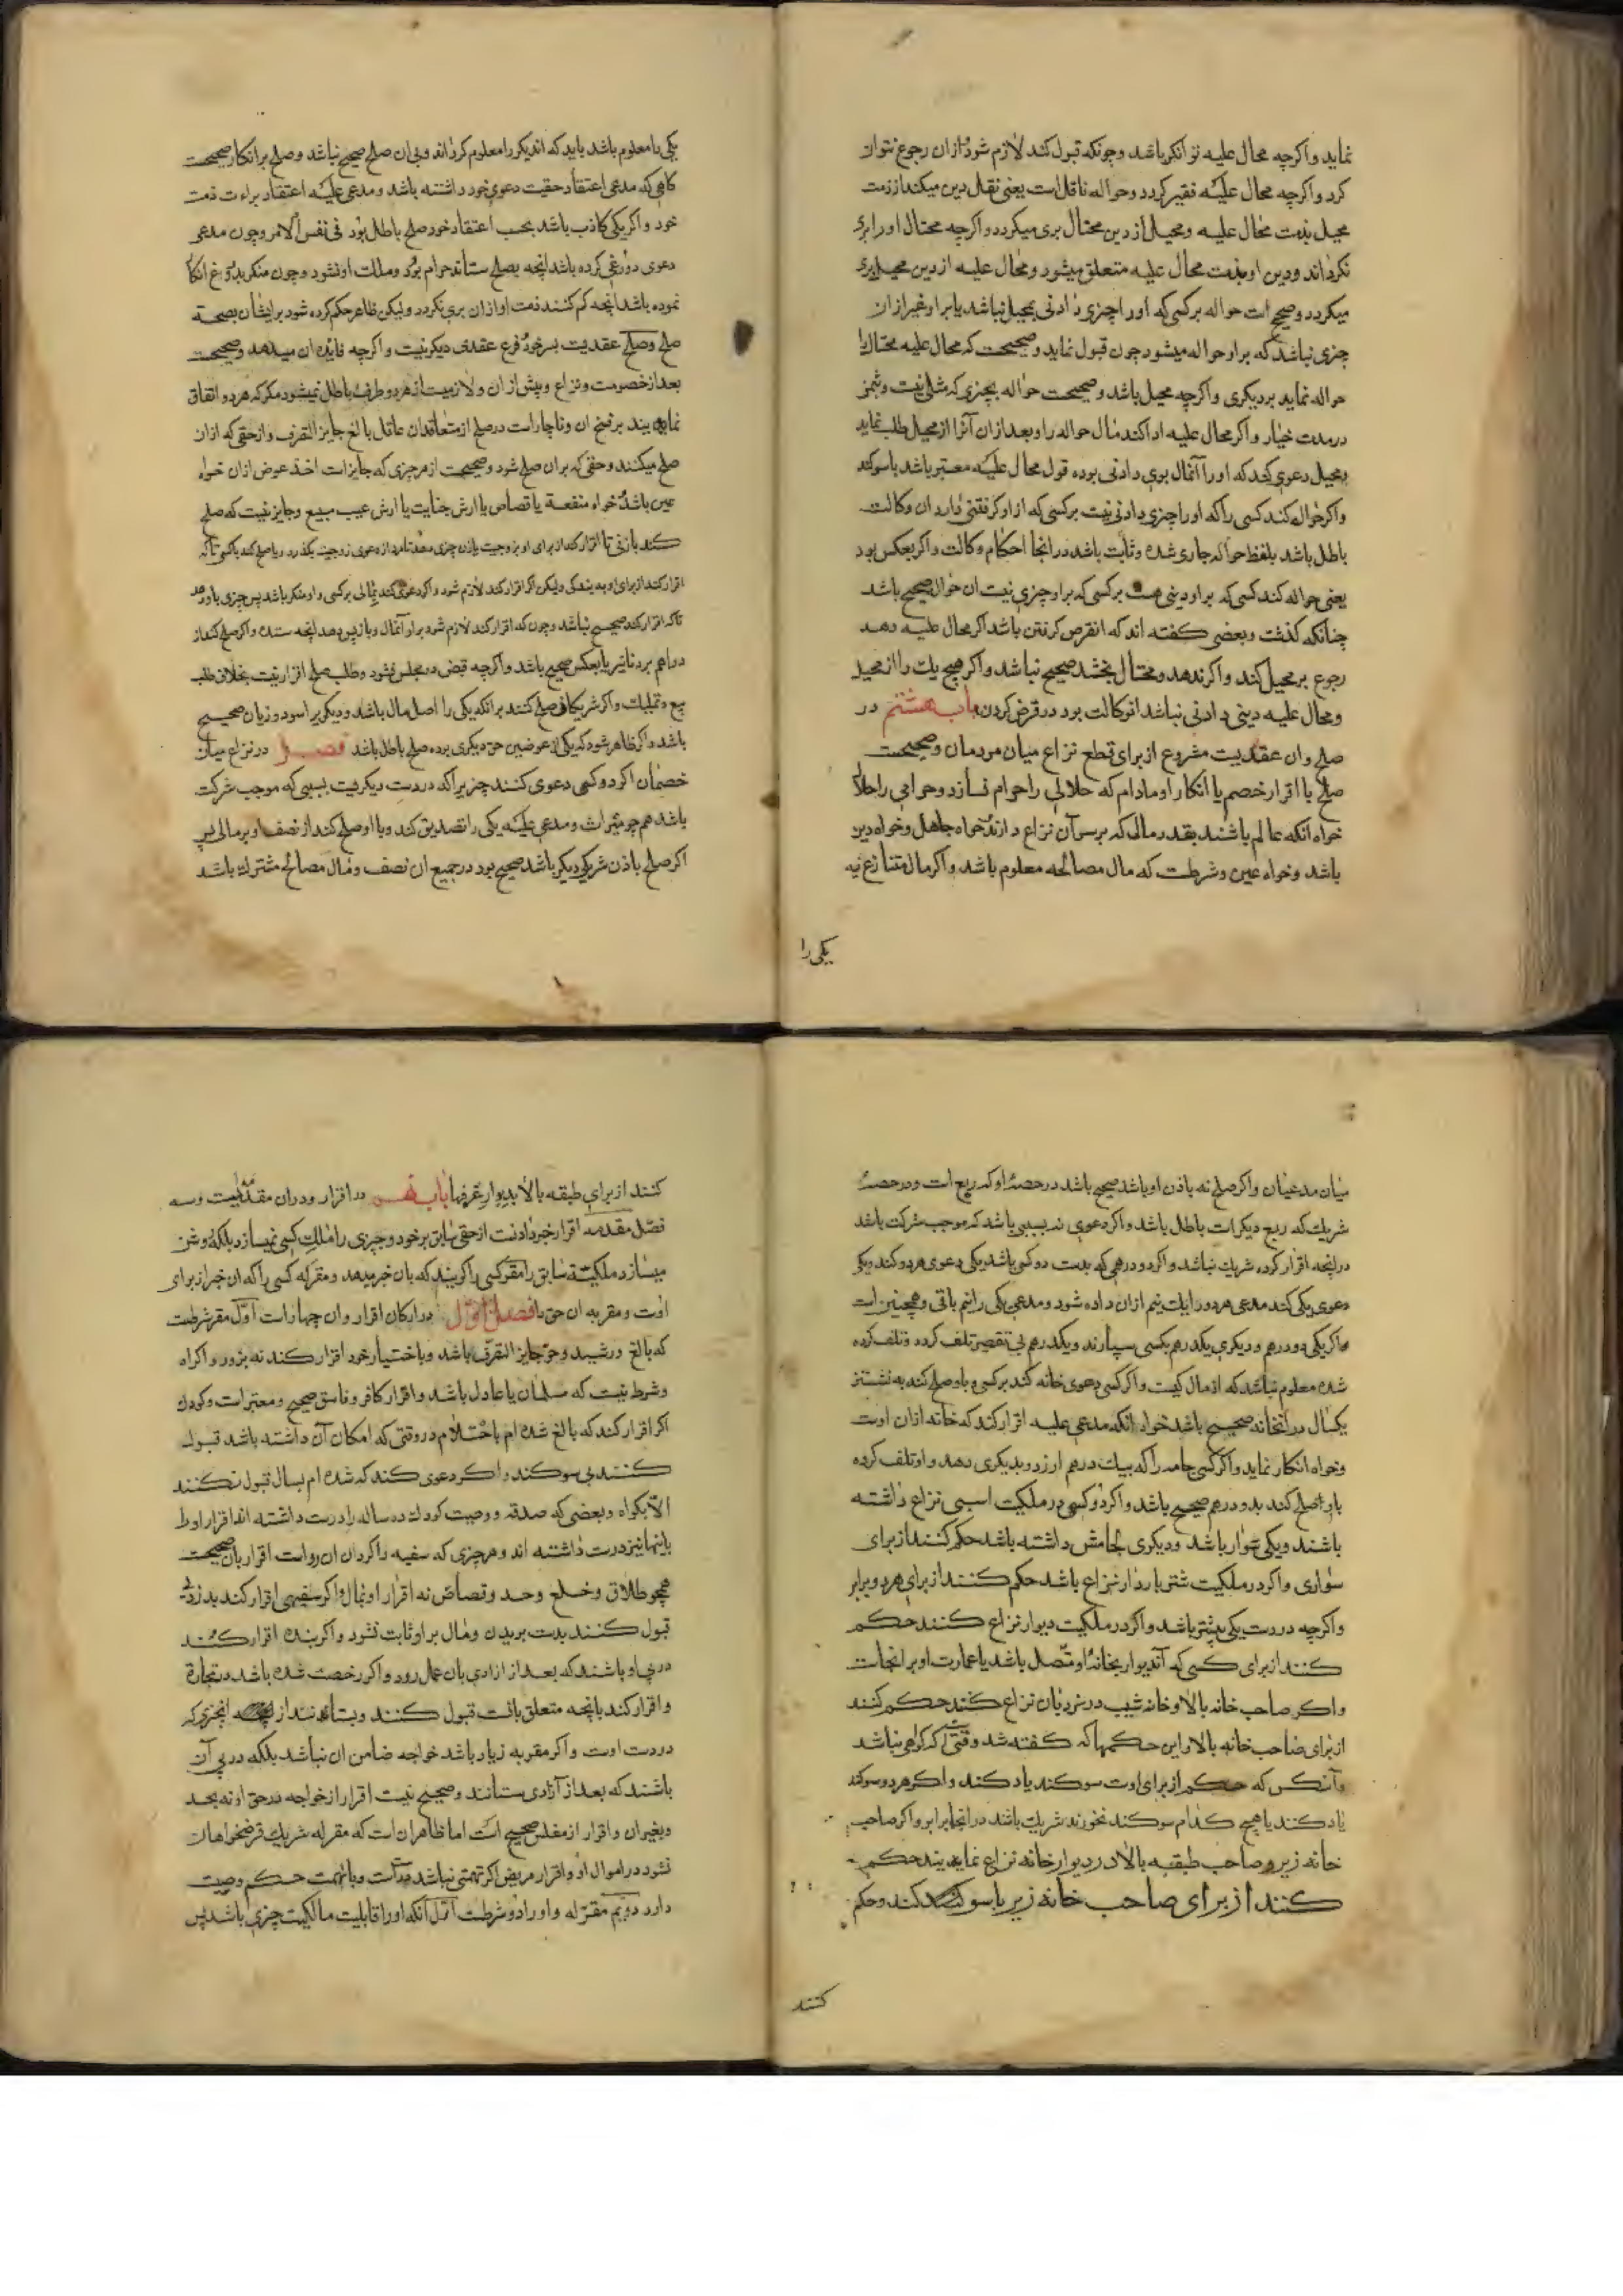 نماید و اکرچه محال علیه توانکر باشد وچونکه قبول کند لازم شود ازان رجوع نتوان
کرد واکرچه محال علیه فقیر کردد وحواله ناقل است یعنی نقل دین میکند از ذمت
محیل بذمت محال علیه ومحیل از دین محتال بری میکردد واکرچه محتال اورا بری
نکرداند ودین او بذمت محال علیه متعلق میشود ومحال علیه از دین محیل بری
میکردد وصحیح است حواله بر کسی که اورا چیزی دادنی بمحیل نباشد یا براو غیر ازان
چیزی نباشد که براو حواله میشود چون قبول نماید وصحیحست که محال علیه محتال را
حواله نماید بر دیکری واکرچه محیل باشد وصحیحست حواله بچیزی که مثلی نیست وبثمن
در مدت خیار واکر محال علیه ادا کند مال حواله را وبعد ازان آنرا از محیل طلب نماید
ومحیل دعوی کند که اورا آنمال بوی دادنی بوده قول محال علیه معتبر باشد باسوکند
واکر حواله کند کسی را که اورا چیزی دادنی نیست بر کسی که از او کرفتنی دارد ان وکالت
باطل باشد بلفظ حواله جاری شده وثابت باشد در انجا احکام وکالت واکر بعکس بود
یعنی حواله کند کسی که براو دینی هست بر کسی که براو چیزی نیست ان حوال صحیح باشد
چنانکه کذشت وبعضی کفته اند که انقرض کرفتن باشد اکر محال علیه دهد
رجوع بر محیل کند واکر ندهد ومحتال بخشد صحیح نباشد واکر هیچ یك را از محیل
ومحال علیه دینی دادنی نباشد انوکالت بود در قرض کردن باب هشتم در
صلح وان عقدیست مشروع از برای قطع نزاع میان مردمان وصحیحست
صلح با اقرار خصم یا انکار او مادام که حلالی را حرام نسازد وحرامی را حلال
خواه انکه عالم باشند بقدر مالی که بر سر آن نزاع دارند خواه جاهل وخواه دین
باشد وخواه عین وشرطست که مال مصالحه معلوم باشد واکر مال متنازع فیه
یکی را
یکی را معلوم باشد باید که اندیکر را معلوم کرداند وبی ان صلح صحیح نباشد وصلح بر انکار صحیحست
کاهی که مدعی اعتقاد حقیت دعوی خود داشته باشد ومدعی علیه اعتقاد براءت ذمت
خود واکر یکی کاذب باشد بحسب اعتقاد خود صلح باطل بود فی نفس الامر وچون مدعی
دعوی دروغی کرده باشد انچه بصلح ستاند حرام بود وملك او نشود وچون منکر بدروغ انکار
نموده باشد انچه کم کنند ذمت او ازان بری نکردد ولیکن ظاهر حکم کرده شود بر ایشان بصحة
صلح وصلح عقدیست بسر خود فرع عقدی دیکر نیست واکرچه فایده ان میدهد وصحیحست
بعد از خصومت ونزاع وپیش از ان ولازمست از هر دو طرف باطل نمیشود مکر که هر دو اتفاق
نمایند بر فسخ ان وناچار است در صلح از متعاقدان عاقل بالغ جایز التصرف واز حقی که ازان
صلح میکنند وحقی که بران صلح شود وصحیحست از هر چیزی که جایز است اخذ عوض ازان خواه
عین باشد خواه منفعة یا قصاص یا ارش جنایت یا ارش عیب مبیع وجایز نیست که صلح
کند با زنی تا اقرار کند از برای او بزوجیت
اقرار کند از برای او به بندکی ولیکن اکر اقرار کند لازم شود واکر دعوی کند بمالی بر کسی واو منکر باشد پس چیزی باو دهد
تا که اقرار کند صحیح نباشد وچون که اقرار کند لازم شود براو آنمال وباز پس دهد انچه ستده واکر صلح کند از
دراهم بر دنانیر یا بعکس صحیح باشد واکرچه قبض در مجلس نشود وطلب صلح اقرار نیست بخلاف طلب
بیع وتملیك واکر شریکان صلح کنند برانکه یکی را اصل مال باشد ودیکر برا سود وزیان صحیح
باشد واکر ظاهر شود که یکی از عوضین حق دیکری بوده صلح باطل باشد فصل در نزاع میان
خصمان اکر دو کس دعوی کنند چیزی را که در دست دیکریست بسببی که موجب شرکت
باشد همچو میراث ومدعی علیه یکی را تصدیق کند وبا او صلح کند از نصف او بر مالی پس
اکر صلح باذن شریك دیکر باشد صحیح بود در جمیع ان نصف ومال مصالحه مشترك باشد
میان مدعیان واکر صلح نه باذن او باشد صحیح باشد در حصهٔ او که ربع است ودر حصهٔ
شریك که ربع دیکر است باطل باشد واکر دعوی نه بسببی باشد که موجب شرکت باشد
در انچه اقرار کرده شریك نباشد واکر دو درهمی که بدست دو کس باشد یکی دعوی هر دو کند ویکی
دعوی یکی کند مدعی هر دو را یك نیم ازان داده شود ومدعی یکی را نیم باقی وهمچنین است
اکر یکی دو درهم ودیکری یکدرهم بکسی سپارند ویکدرهم بی تقصیر تلف کردد وتلف کرده
شده معلوم نباشد که از مال کیست واکر کسی دعوی خانه کند بر کسی وباو صلح کند به نشستن
یکسال در انخانه صحیح باشد خواه انکه مدعی علیه اقرار کند که خانه ازان اوست
وخواه انکار نماید واکر کسی جامه را که بیك درهم ارزد وبدیکری دهد واو تلف کرده
باو صلح کند بدو درهم صحیح باشد واکر دو کس در ملکیت اسبی نزاع داشته
باشند ویکی سوار باشد ودیکری لجامش داشته باشد حکم کنند از برای
سواری واکر در ملکیت شتر باردار نزاع باشد حکم کنند از برای هر دو برابر
واکرچه در دست یکی بیشتر باشد واکر در ملکیت دیوار نزاع کنند حکم
کنند از برای کسی که آندیوار بخانهٔ او متصل باشد یا عمارت او بر انجاست
واکر صاحب خانه بالا وخانه شیب در نردبان نزاع کنند حکم کنند
از برای صاحب خانه بالا واین حکمها که کفته شد وقتیست که کواهی نباشد
وآنکس که حکم از برای اوست سوکند یاد کند واکر هر دو سوکند
یاد کنند یا هیچ کدام سوکند نخورند شریك باشد در انجا برابر واکر صاحب
خانه زیر وصاحب طبقه بالا در دیوار خانه نزاع نمایند حکم
کنند از برای صاحب خانه زیر با سوکند وحکم
کنند
کنند از برای طبقه بالا بدیوار غرفها باب نهم در اقرار ودران مقدمه ایست وسه
فصل مقدمه اقرار خبر دادنست از حقی سابق بر خود وچیزی را ملك کسی نمیسازد بلکه روشن
میسازد ملکیتة سابق را مقر کسی را کویند که بان خبر میدهد ومقر له کسی را که ان خبر از برای
اوست ومقر به ان حق را فصل اول در ارکان اقرار وان چهار است اول مقر شرطست
که بالغ ورشید وحر جایز التصرف باشد وباختیار خود اقرار کند نه بزور واکراه
وشرط نیست که مسلمان یا عادل باشد واقرار کافر وفاسق صحیح ومعتبر است وکودك
اکر اقرار کند که بالغ شده ام باحتلام در وقتی که امکان آن داشته باشد قبول
کنند بی سوکند واکر دعوی کند که شده ام بسال قبول نکنند
الا بکواه وبعضی که صدقه ووصیت کودك ده ساله را درست داشته اند اقرار اورا
باینها نیز درست داشته اند وهر چیزی که سفیه را کردن ان رواست اقرار بان صحیحست
همچو طلاق وخلع وحد وقصاص نه اقرار او بمال واکر سفیهی اقرار کند بدزدی
قبول کنند بدست بریدن ومال براو ثابت نشود واکر بنده اقرار کند
در پی او باشند که بعد از ازادی بان عمل رود واکر رخصت شده باشد در تجارة
واقرار کند بانچه متعلق بانست قبول کنند وبستانند از انچیزی که
در دست اوست واکر مقر به زیاد باشد خواجه ضامن ان نباشد بلکه در پی آن
باشند که بعد از آزادی ستانند وصحیح نیست اقرار از خواجه در حق او نه بحد
وبغیر ان واقرار از مفلس صحیح است اما ظاهر ان است که مقر له شریك قرضخواهان
نشود در اموال او واقرار مریض اکر تهمتی نباشد درست وبا تهمت حکم وصیت
دارد دویم مقر له واورا دو شرطست اول آنکه اورا قابلیت مالکیت چیزی باشد پس